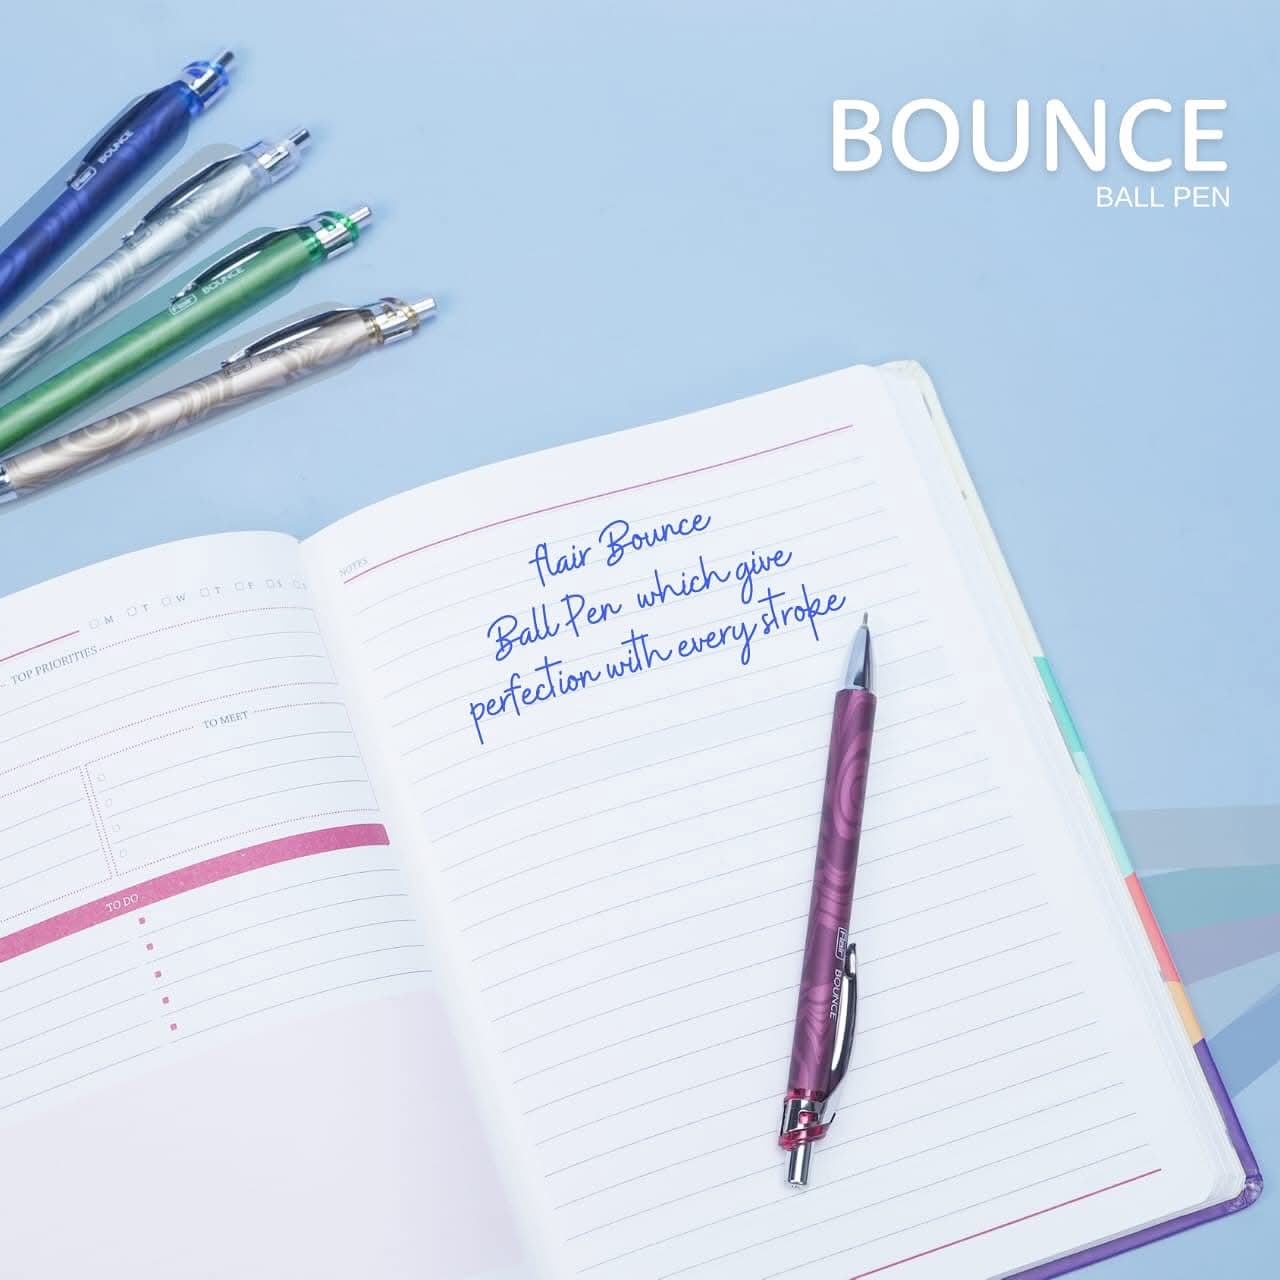 BOUNCE
BALL PEN
Flair BOUNCE
Flair BOUNCE
Flair BOUNCE
Flair BOUNCE
NOTES
flair Bounce
Ball Pen which give
perfection with every stroke
M T W T F S S
TOP PRIORITIES
TO MEET
TO DO
Flair BOUNCE